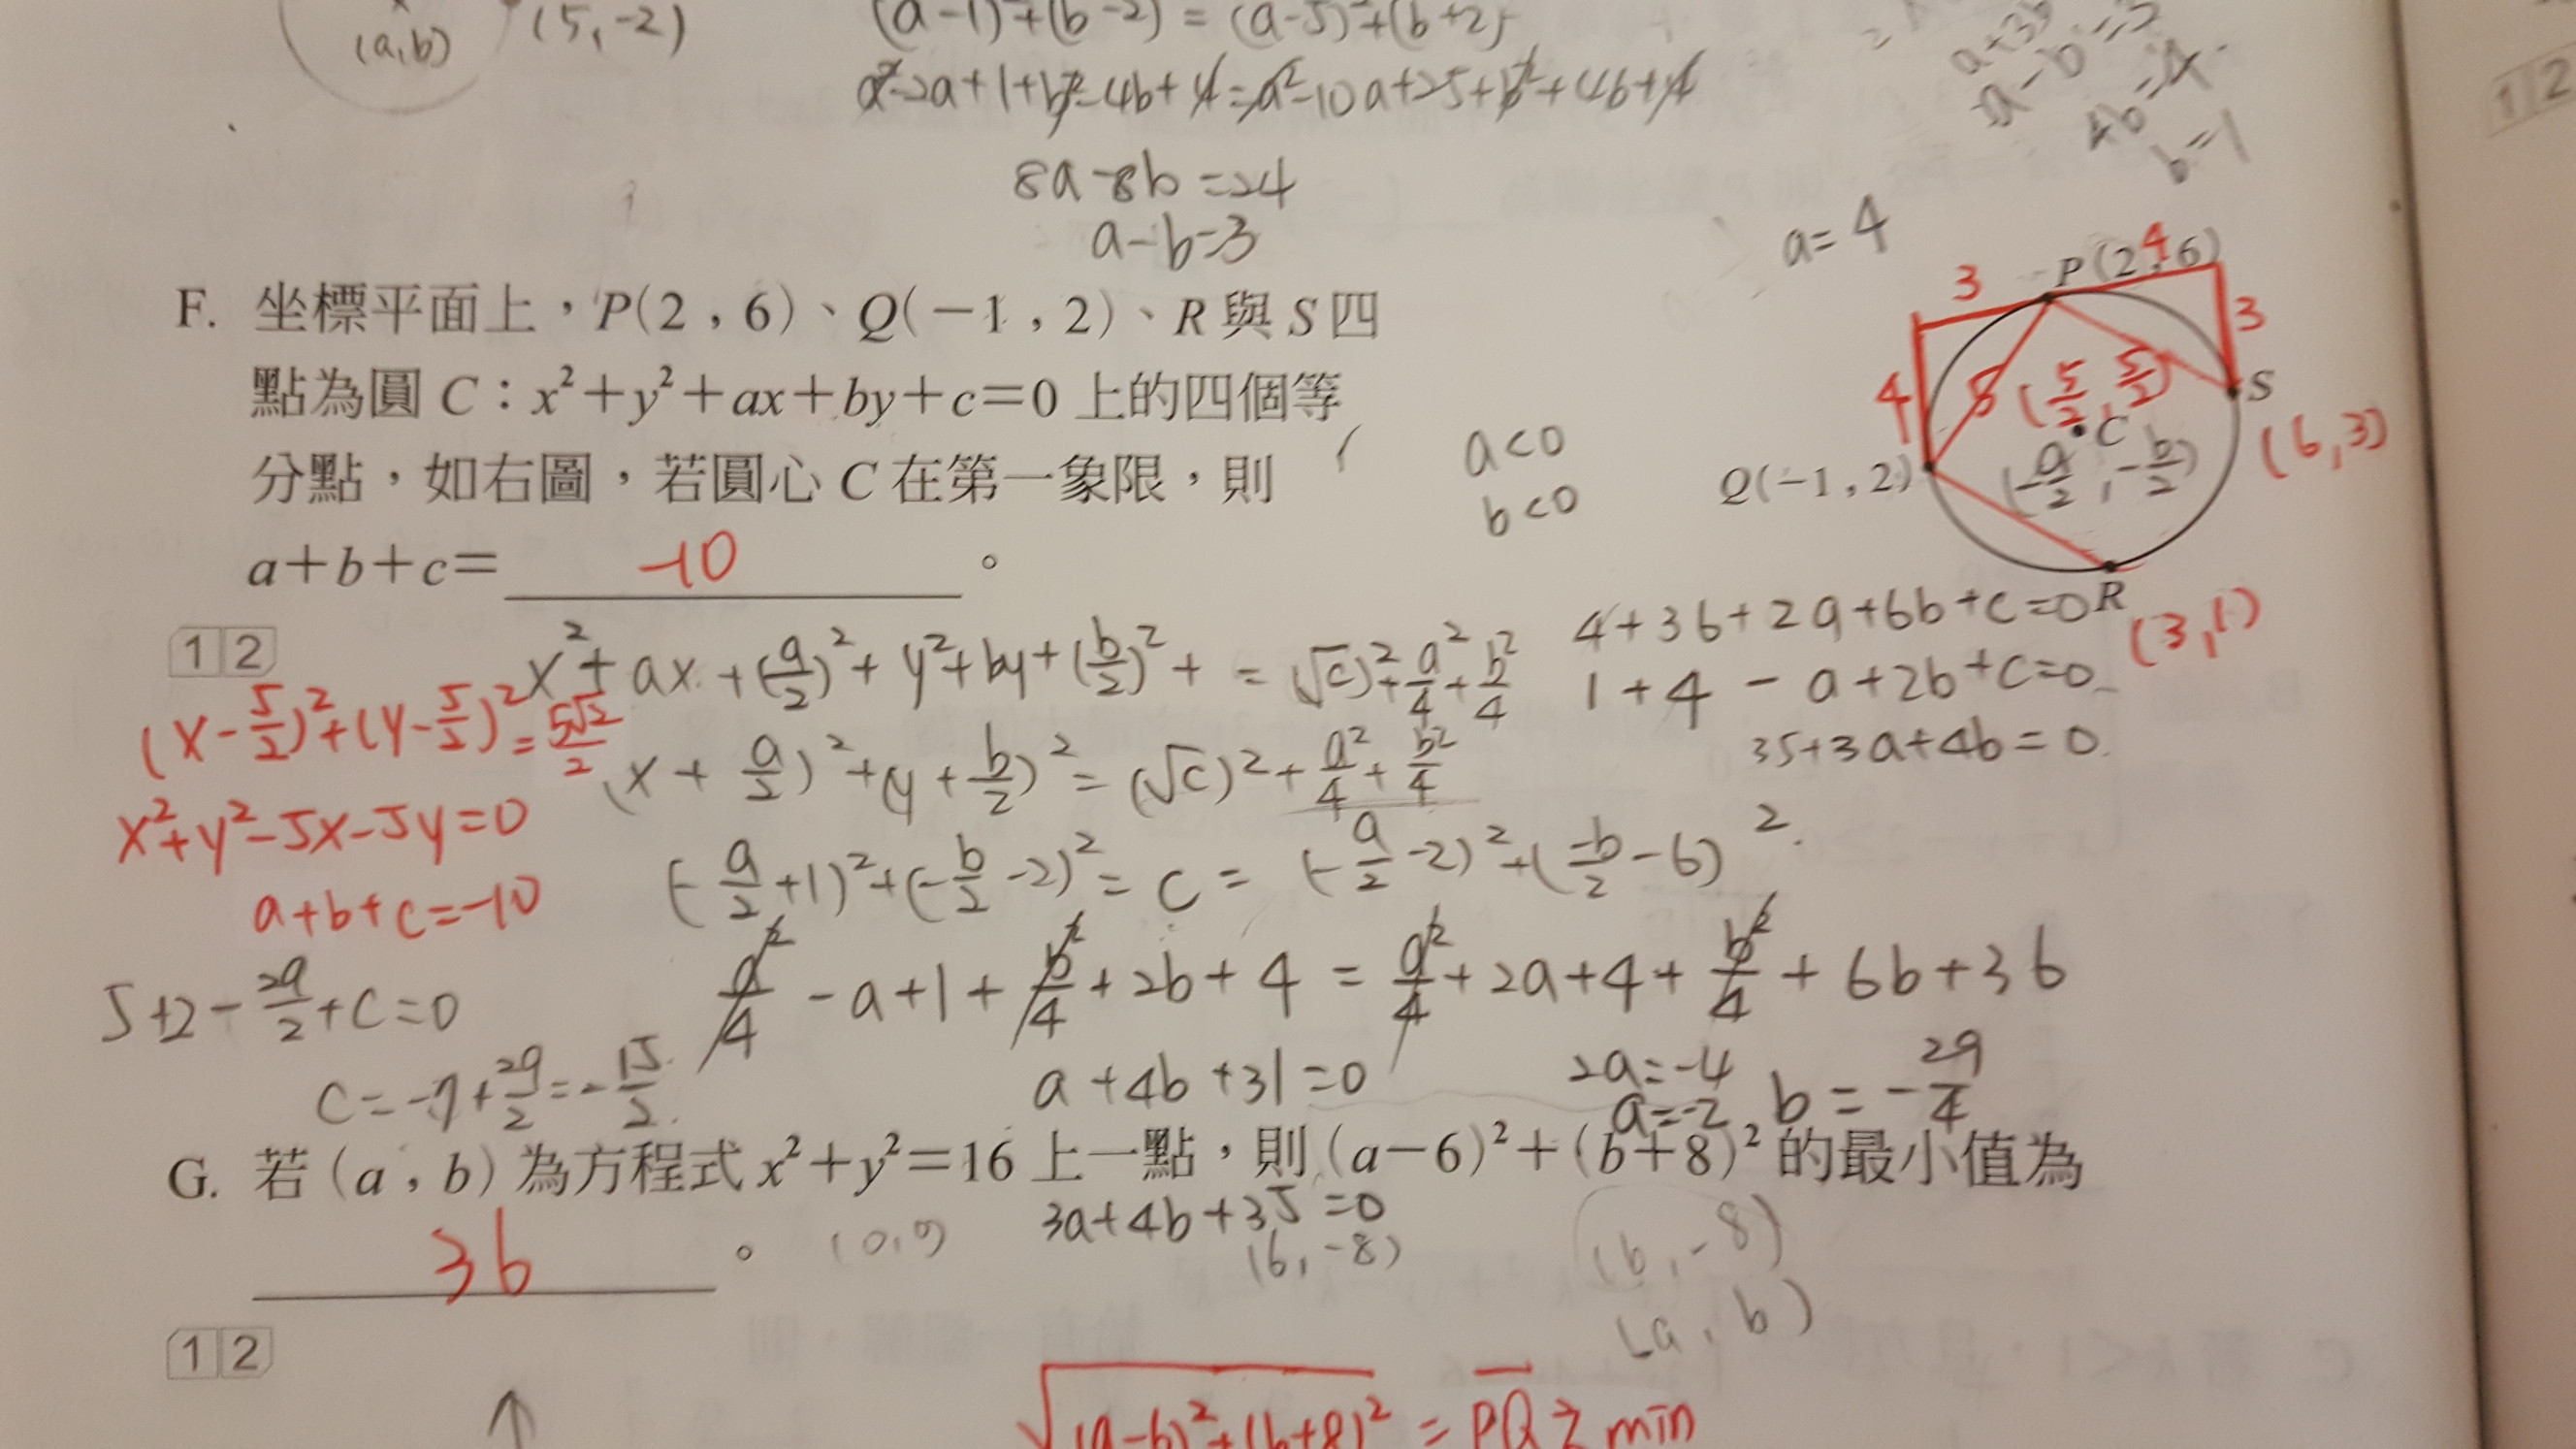 (a,b)
(5,-2)
(a-1)²+(b-2)²=(a-5)²+(b+2)²
a²-2a+1+b²-4b+4=a²-10a+25+b²+4b+4
8a-8b=24
a-b=3
a-b=3
4b=4
b=1
a=4
F. 坐標平面上，P(2，6)、Q(-1，2)、R與S四
點為圓C：x²+y²+ax+by+c=0 上的四個等
分點，如右圖，若圓心C在第一象限，則
a+b+c= -10 。
a<0
b<0
P(2,6)
3
4
4
3
5
(5/2, 5/2)
S
(6,3)
C
(-a/2, -b/2)
Q(-1,2)
R
(3,1)
12
x²+ax+(a/2)²+y²+by+(b/2)²+ =(√c)²+a²/4+b²/4
4+36+2a+6b+c=0
1+4-a+2b+c=0
35+3a+4b=0
(x-5/2)²+(y-5/2)²=5√2/2
(x+a/2)²+(y+b/2)²=(√c)²+a²/4+b²/4
x²+y²-5x-5y=0
(-a/2+1)²+(-b/2-2)²=c=(-a/2-2)²+(-b/2-6)²
a+b+c=-10
a²/4-a+1+b²/4+2b+4=a²/4+2a+4+b²/4+6b+36
5+2-29/2+c=0
c=-7+29/2=-15/2
a+4b+31=0
2a=-4
a=-2
b=-29/4
G. 若(a，b)為方程式x²+y²=16上一點，則(a-6)²+(b+8)²的最小值為
36 。
3a+4b+35=0
(0,0)
(6,-8)
(6,-8)
(a,b)
12
√(a-6)²+(b+8)² = PQ ≥ min
12